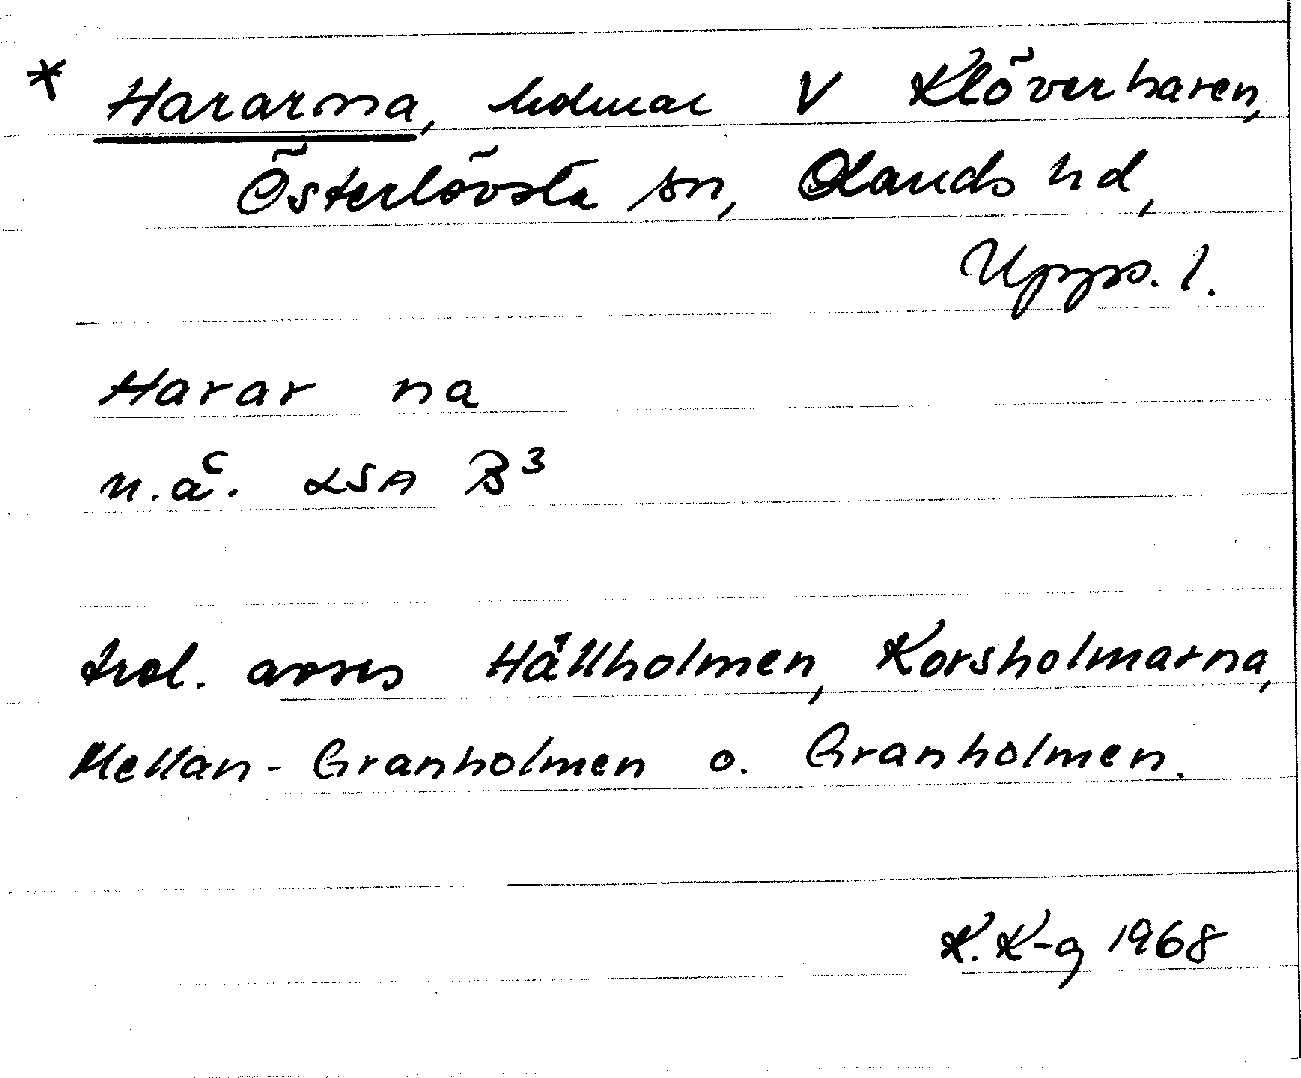 * Hararna, holmar V Klöverharen,
Österlövsta sn, Olands hd,
Upps. l.
Harar na
n.å. LSA B³
trol. avses Hällholmen, Korsholmarna,
Mellan-Granholmen o. Granholmen.
K. K-g 1968